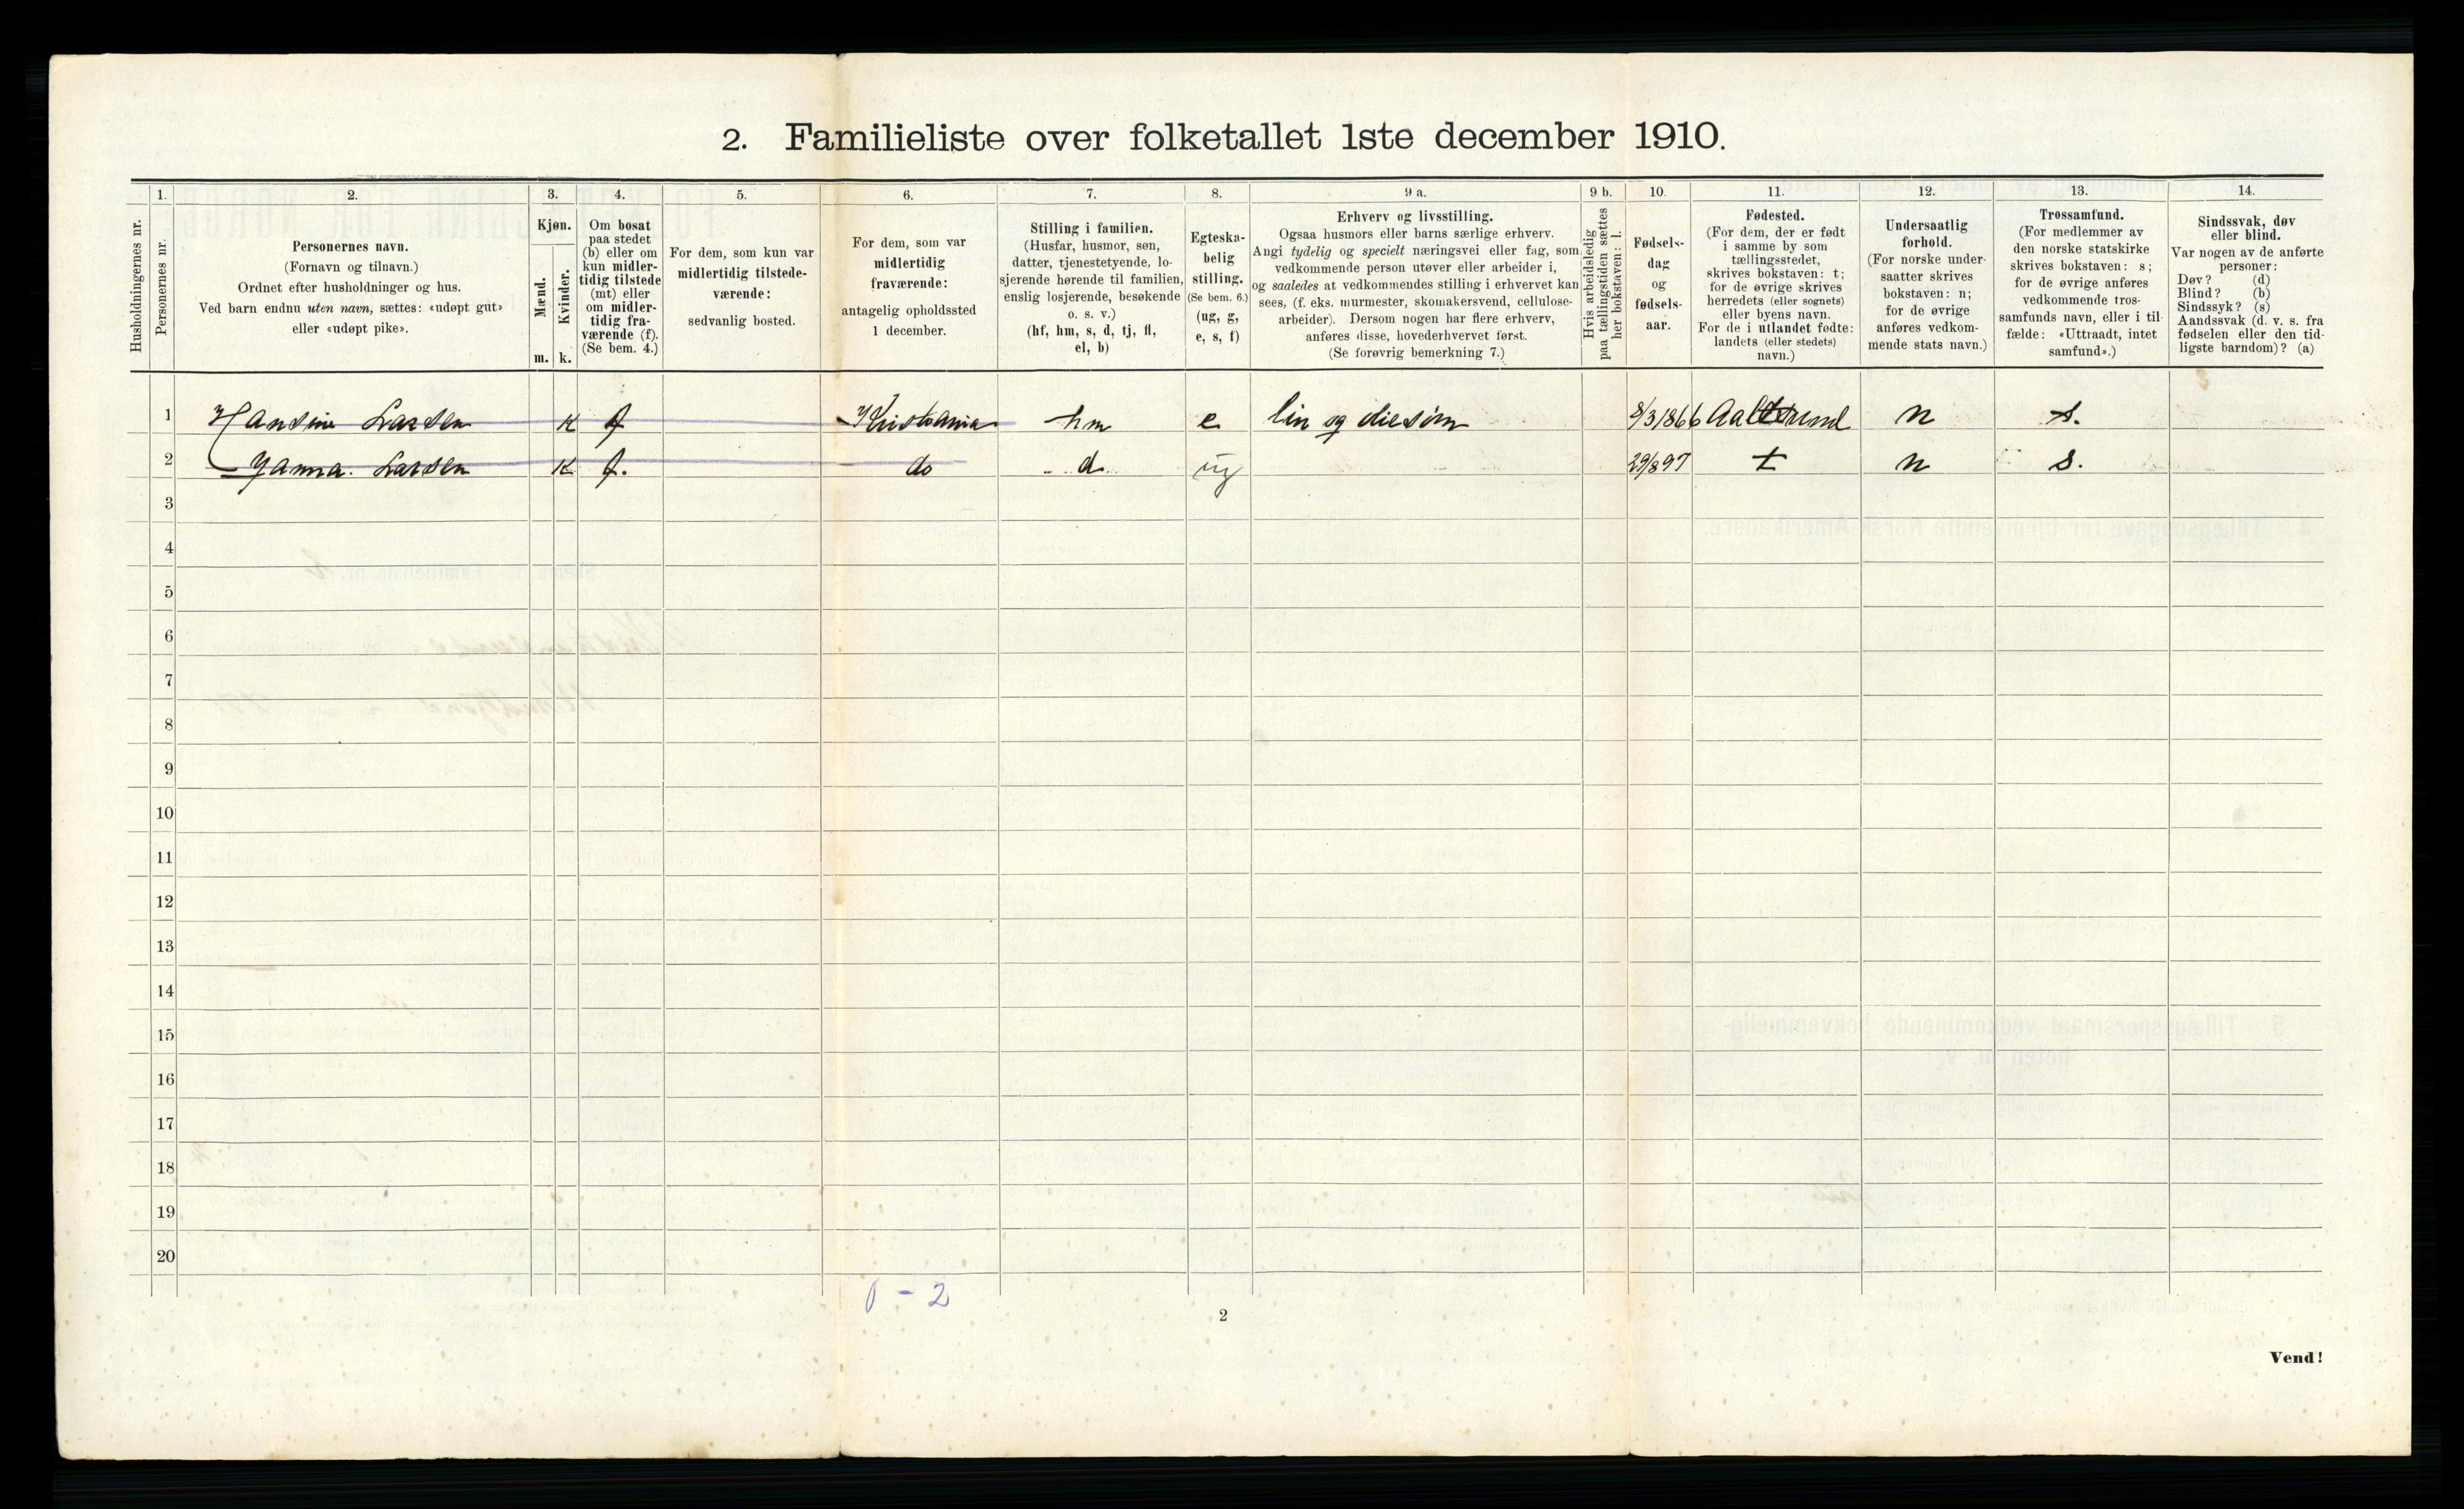 2. Familieliste over folketallet 1ste december 1910.
Husholdningernes nr.
1.
Personernes nr.
2.
Personernes navn.
(Fornavn og tilnavn.)
Ordnet efter husholdninger og hus.
Ved barn endnu uten navn, sættes: «udøpt gut»
eller «udøpt pike».
3.
Kjøn.
Mænd.
m.
Kvinder.
k.
4.
Om bosat
paa stedet
(b) eller om
kun midler-
tidig tilstede
(mt) eller
om midler-
tidig fra-
værende (f).
(Se bem. 4.)
5.
For dem, som kun var
midlertidig tilstede-
værende:
sedvanlig bosted.
6.
For dem, som var
midlertidig
fraværende:
antagelig opholdssted
1 december.
7.
Stilling i familien.
(Husfar, husmor, søn,
datter, tjenestetyende, lo-
sjerende hørende til familien,
enslig losjerende, besøkende
o. s. v.)
(hf, hm, s, d, tj, fl,
el, b)
8.
Egteska-
belig
stilling.
(Se bem. 6.)
(ug, g,
e, s, f)
9 a.
Erhverv og livsstilling.
Ogsaa husmors eller barns særlige erhverv.
Angi tydelig og specielt næringsvei eller fag, som
vedkommende person utøver eller arbeider i,
og saaledes at vedkommendes stilling i erhvervet kan
sees, (f. eks. murmester, skomakersvend, cellulose-
arbeider). Dersom nogen har flere erhverv,
anføres disse, hovederhvervet først.
(Se forøvrig bemerkning 7.)
9 b.
Hvis arbeidsledig
paa tællingstiden sættes
her bokstaven: l.
10.
Fødsels-
dag
og
fødsels-
aar.
11.
Fødested.
(For dem, der er født
i samme by som
tællingsstedet,
skrives bokstaven: t;
for de øvrige skrives
herredets (eller sognets)
eller byens navn.
For de i utlandet fødte:
landets (eller stedets)
navn.)
12.
Undersaatlig
forhold.
(For norske under-
saatter skrives
bokstaven: n;
for de øvrige
anføres vedkom-
mende stats navn.)
13.
Trossamfund.
(For medlemmer av
den norske statskirke
skrives bokstaven: s;
for de øvrige anføres
vedkommende tros-
samfunds navn, eller i til-
fælde: «Uttraadt, intet
samfund».)
14.
Sindssvak, døv
eller blind.
Var nogen av de anførte
personer:
Døv? (d)
Blind? (b)
Sindssyk? (s)
Aandssvak (d. v. s. fra
fødselen eller den tid-
ligste barndom)? (a)
1 Hansine Larsen K f Kristiania hm e lin og 8/3 1866 n s.
2 Hanna. Larsen K f. do d. ug 29/8 97 t n s.
3
4
5
6
7
8
9
10
11
12
13
14
15
16
17
18
19
20
0 - 2
2
Vend!